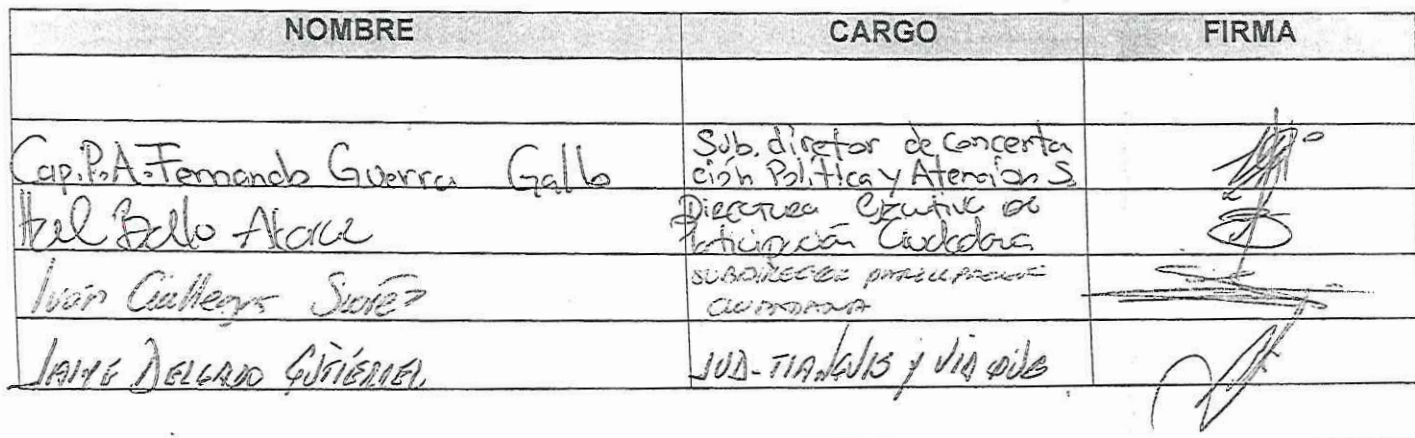 NOMBRE CARGO FIRMA
Cap. P.A. Fernando Guerra Gallo
Sub. diretor de Concerta
ción Política y Atención S.
Bello
Directora Ejecutiva de
Participación Ciudadana
Iván Gallegos Suárez
SUBDIRECTOR
CIUDADANA
JAIME DELGADO GUTIÉRREZ
JUD-TIANGUIS Y VIA PUB